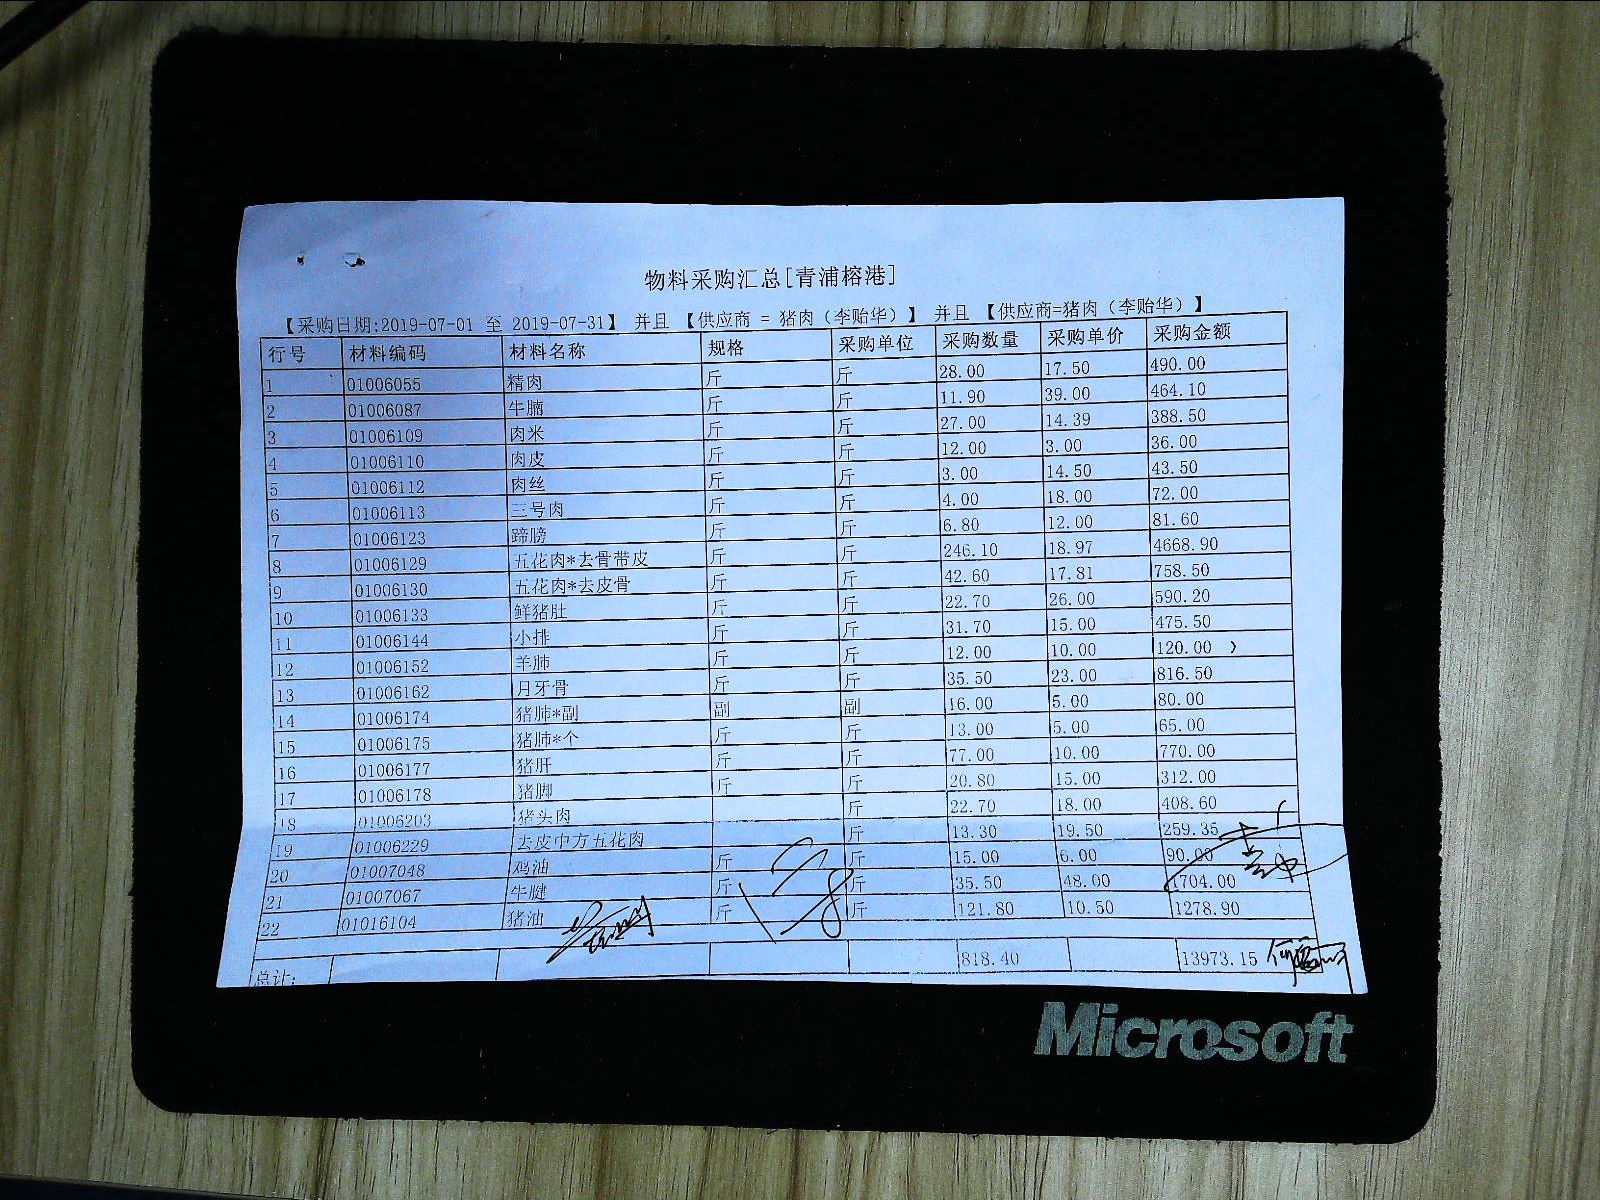 物料采购汇总[青浦榕港]
【采购日期:2019-07-01 至 2019-07-31】 并且 【供应商 = 猪肉（李贻华）】 并且 【供应商=猪肉（李贻华）】
行号 材料编码 材料名称 规格 采购单位 采购数量 采购单价 采购金额
1 01006055 精肉 斤 斤 28.00 17.50 490.00
2 01006087 牛腩 斤 斤 11.90 39.00 464.10
3 01006109 肉米 斤 斤 27.00 14.39 388.50
4 01006110 肉皮 斤 斤 12.00 3.00 36.00
5 01006112 肉丝 斤 斤 3.00 14.50 43.50
6 01006113 三号肉 斤 斤 4.00 18.00 72.00
7 01006123 蹄膀 斤 斤 6.80 12.00 81.60
8 01006129 五花肉*去骨带皮 斤 斤 246.10 18.97 4668.90
9 01006130 五花肉*去皮骨 斤 斤 42.60 17.81 758.50
10 01006133 鲜猪肚 斤 斤 22.70 26.00 590.20
11 01006144 小排 斤 斤 31.70 15.00 475.50
12 01006152 羊肺 斤 斤 12.00 10.00 120.00
13 01006162 月牙骨 斤 斤 35.50 23.00 816.50
14 01006174 猪肺*副 副 副 16.00 5.00 80.00
15 01006175 猪肺*个 斤 斤 13.00 5.00 65.00
16 01006177 猪肝 斤 斤 77.00 10.00 770.00
17 01006178 猪脚 斤 斤 20.80 15.00 312.00
18 01006203 猪头肉 斤 22.70 18.00 408.60
19 01006229 去皮中方五花肉 斤 13.30 19.50 259.35
20 01007048 鸡油 斤 斤 15.00 6.00 90.00
21 01007067 牛腱 斤 斤 35.50 48.00 1704.00
22 01016104 猪油 斤 斤 121.80 10.50 1278.90
总计: 818.40 13973.15
Microsoft